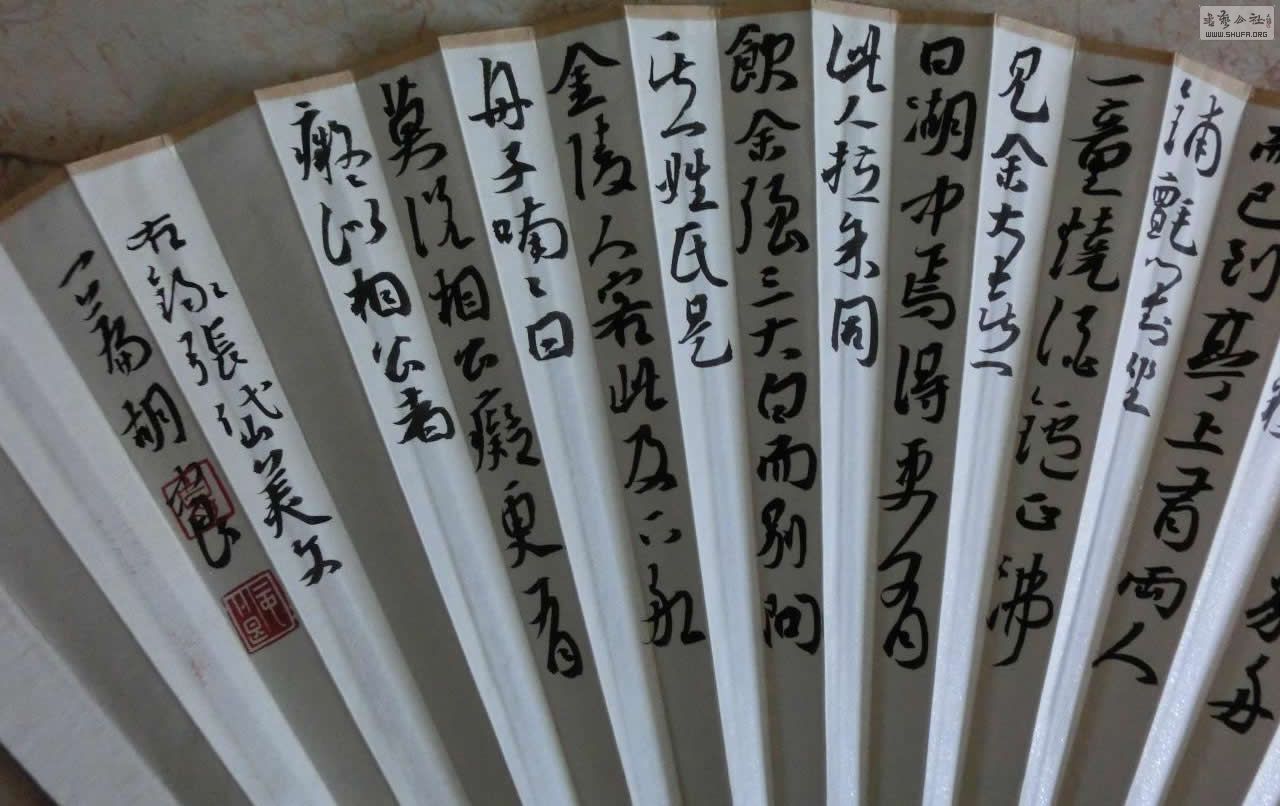 而已到亭上首兩人
鋪氈對坐
一童燒酒爐正沸
見余大喜
曰湖中焉得更有
此人拉余同
飲余強三大白而別問
其姓氏是
金陵人客此及下船
舟子喃々曰
莫說相公癡更有
癡似相公者
右錄張岱美文
一篇胡
書藝公社
WWW.SHUFA.ORG